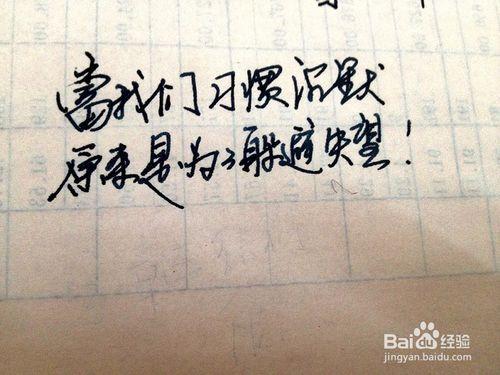 當我们习惯沉默
原来是为了躲避失望！
Baidu经验
jingyan.baidu.com